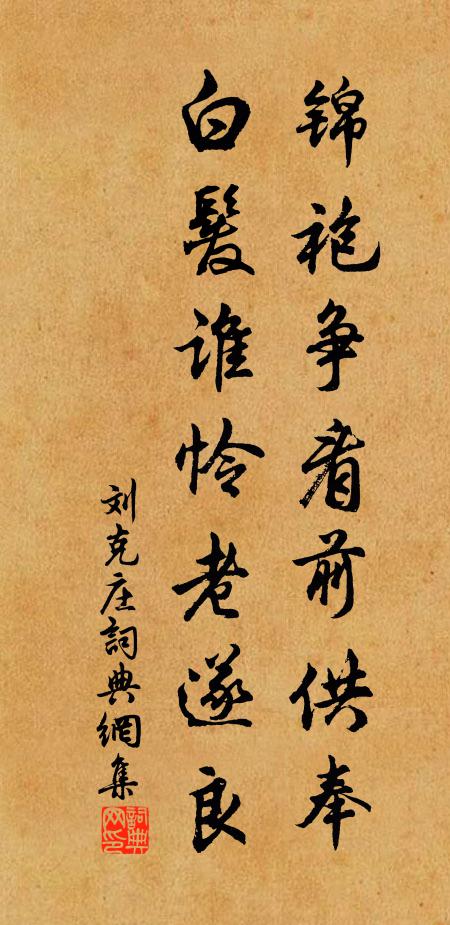 锦袍争看前供奉
白髮谁怜老遂良
刘克庄詞典網集
詞典網印